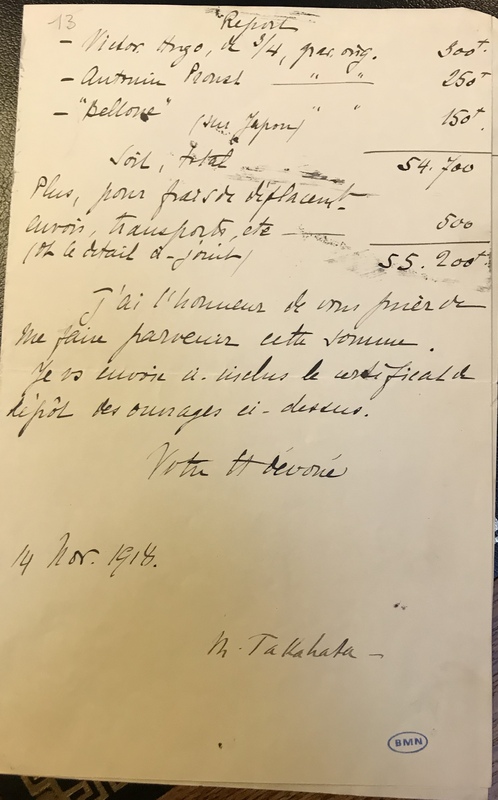 13
Report
- Victor Hugo, de 3/4, par. orig. 300f.
- Antonin Proust — " " — 250f
- "Bellone" " " 150f.
(sur Japon)
Soit, total 54.700
Plus, pour frais de déplacemt
envois, transports, etc — 500
(Vr le détail ci-joint) 55.200f
J'ai l'honneur de vous prier de
me faire parvenir cette somme.
Je vs envoie ci-inclus le certificat de
dépôt des ouvrages ci-dessus.
Votre tt dévoué
14 Nov. 1918.
M. Takahata —
BMN